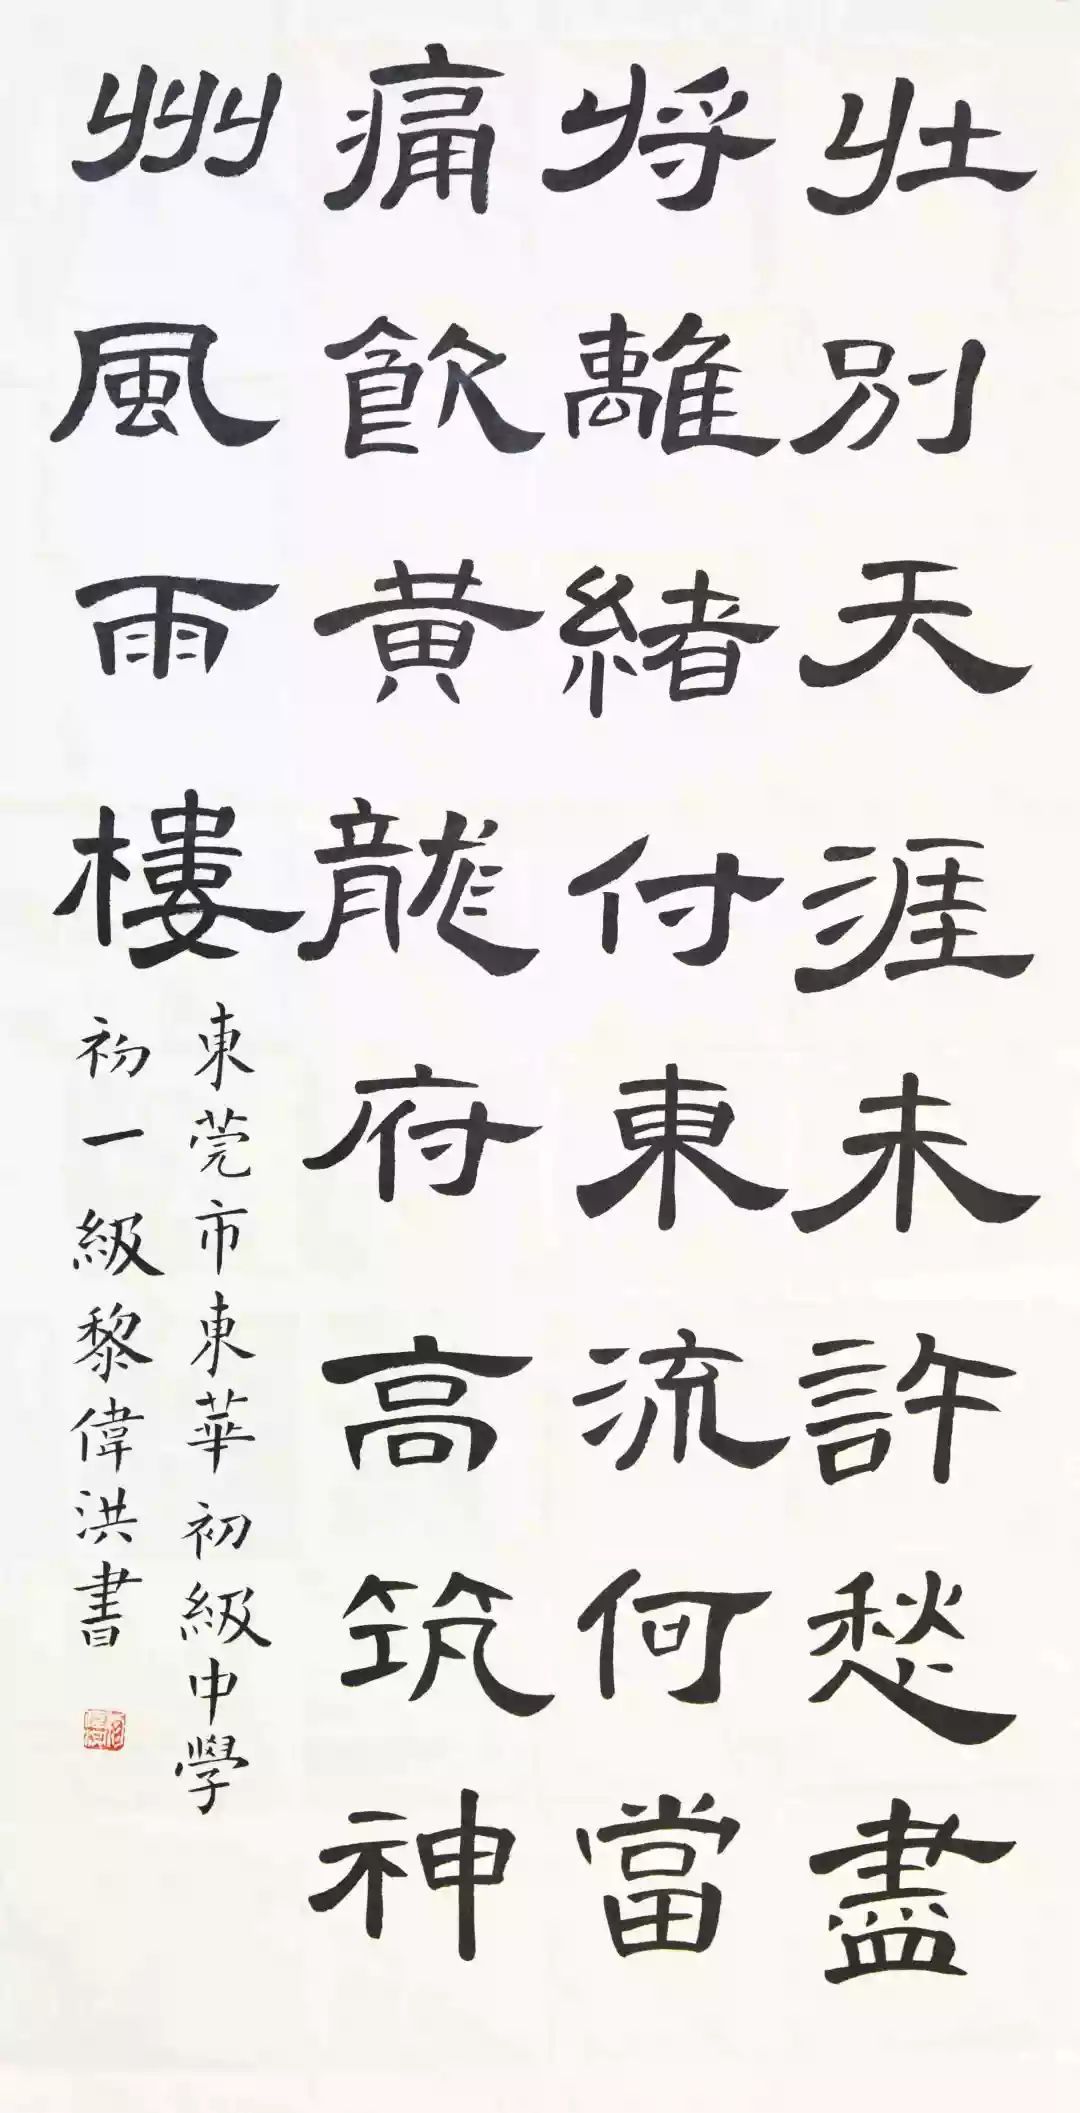 壯別天涯未許愁盡
將離緒付東流何當
痛飲黃龍府高筑神
州風雨樓
東莞市東華初級中學
初一級黎偉洪書